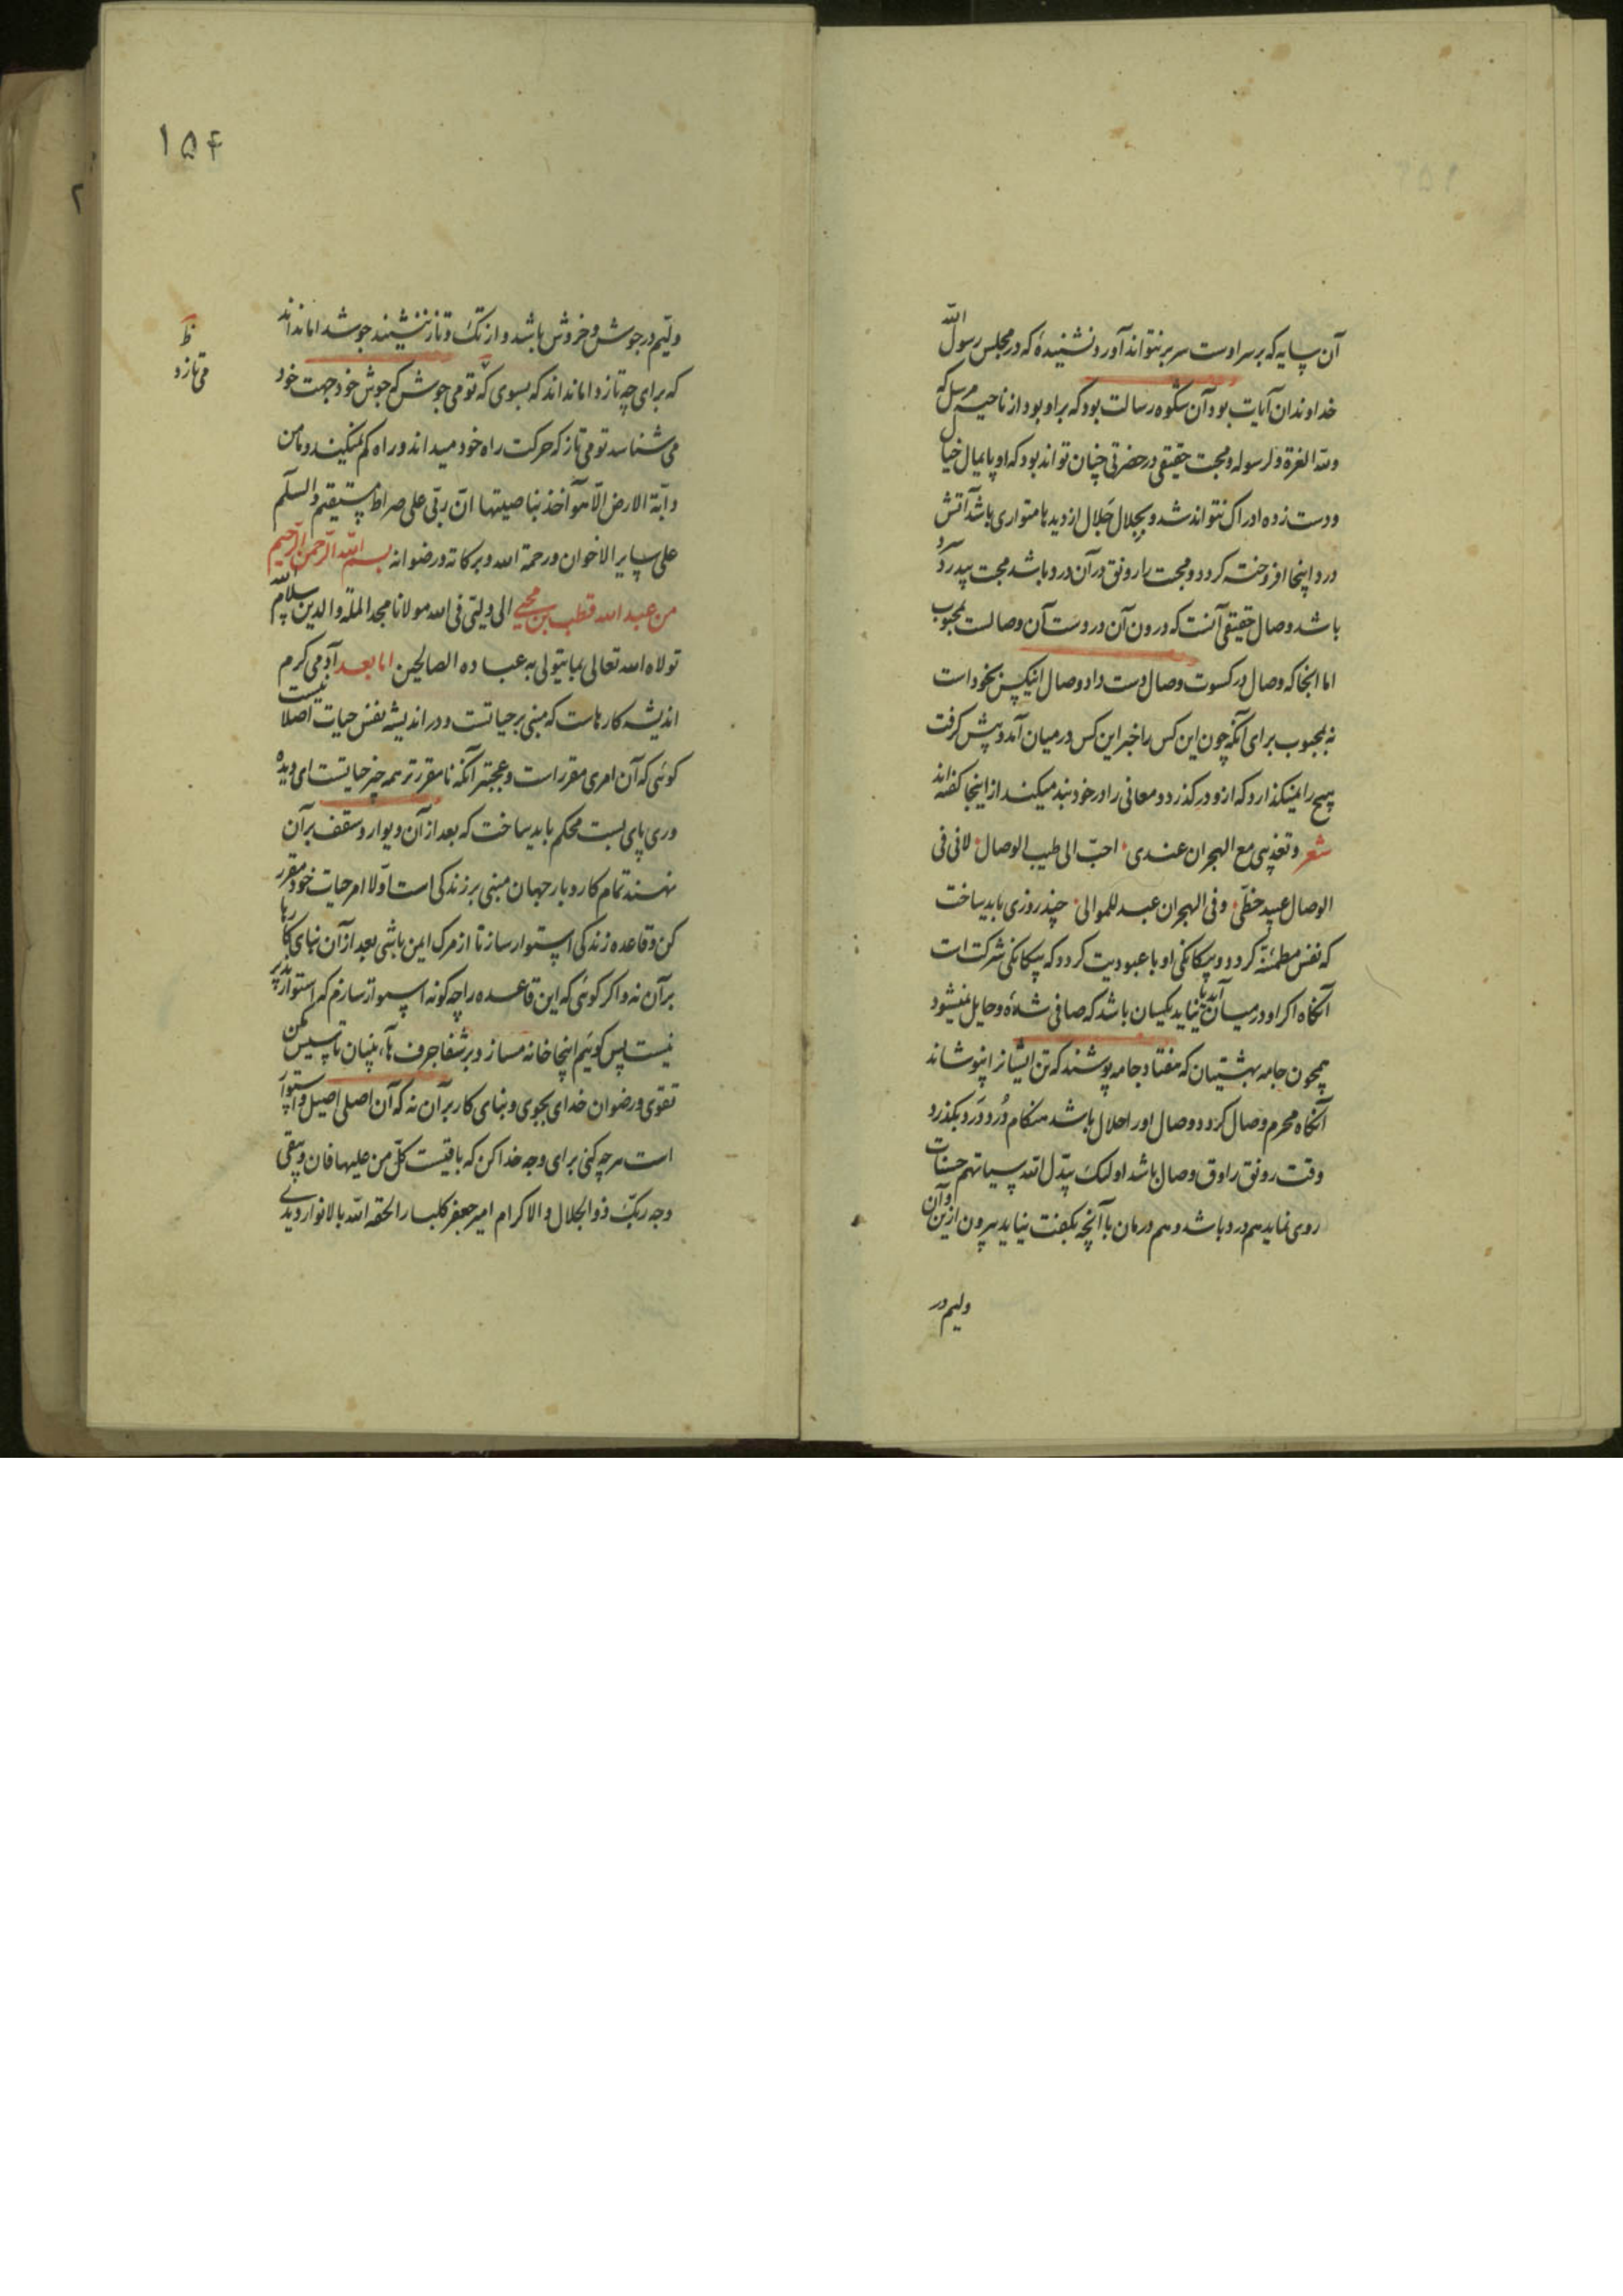 آن سایه که بر سر اوست سر بر نتواند آورد نشنیدهٔ که در مجلس رسول الله
خداوندان آیات بود آن شکوه رسالت بود که بر او بود از ناحیه مرسل که
ولله العزة ولرسوله ومحبت حقیقی در حضرتی چنان تواند بود که او پایمال خیال
ودست زده ادراک نتواند شد وبجلال جلال از دیدها متواری باشد آتش
درد اینجا افروخته کردد ومحبت را رونق در آن درد باشد محبت بیدرد
باشد وصال حقیقی آنست که درون آن دردست آن وصالت بمحبوب
اما انجا که وصال در کسوت وصال دست داد وصال اینکس بخود است
نه بمحبوب برای آنکه چون این کس را خبر این کس در میان آمد وپیش کرفت
هیچ را نمیکذارد که ازو درکذرد ومعانی را در خود بند میکند از اینجا کفته‌اند
شعر وتعذیبی مع الهجران عندی احب الی طیب الوصال لانی فی
الوصال عبید حظی وفی الهجران عبد للموالی چند روزی باید ساخت
که نفس مطمئنه کردد وبیکانکی او با عبودیت کردد که بیکانکی شرکت است
آنکاه اکر او در میان آید یا نیاید یکسان باشد که صافی شده وحایل نمیشود
همچون جامه بهشتیان که هفتاد جامه پوشند که تن ایشانرا نپوشاند
آنکاه محرم وصال کردد ووصال اورا حلال باشد هنکام دُرد دَرد بکذرد
وقت رونق راوق وصال باشد اولئک یبدل الله سیاتهم حسنات
روی نماید هم درد باشد وهم درمان با آنچه بکفت نیاید بیرون ازین وآن
ولیم در
۱۵۴
ولیم در جوش وخروش باشد واز تک وتاز ننشیند جوشد اما نداند
که برای چه تازد اما نداند که بسوی که تو می جوش که جوش خود جهت خود
ظ
می تازد
می شناسد تو می تاز که حرکت راه خود میداند وراه کم نمیکند وما من
دابة الارض الا هو آخذ بناصیتها ان ربی علی صراط مستقیم والسلم
علی سایر الاخوان ورحمة الله وبرکاته ورضوانه بسم الله الرحمن الرحیم
من عبد الله قطب بن محیی الی ولیی فی الله مولانا مجد الملة والدین سلام الله
تولاه الله تعالی بما یتولی به عباده الصالحین اما بعد آدمی کرم
اندیشه کارهاست که مبنی بر حیاتست ودر اندیشه نفس حیات اصلا نیست
کوئی که آن امری مقرر است وعجبتر آنکه نامقررتر همه چیز حیاتست ای دیده
وری پای بست محکم باید ساخت که بعد از آن دیوار وسقف بر آن
نهند تمام کار وبار جهان مبنی بر زندکی است اولا امر حیات خود مقرر
کن وقاعده زندکی استوار ساز تا از مرک ایمن باشی بعد از آن بنای کارها
بر آن نه واکر کوئی که این قاعده را چه کونه استوار سازم که استوار پذیر
نیست پس کویم اینجا خانه مساز وبر شفا جرف هار بنیان تاسیس مکن
تقوی ورضوان خدای بجوی وبنای کار بر آن نه که آن اصلی اصیل واستوار
است هرچه کنی برای وجه خدا کن که باقیست کل من علیها فان ویبقی
وجه ربک ذو الجلال والاکرام امیر جعفر کلبار الحقه الله بالانوار دیدی